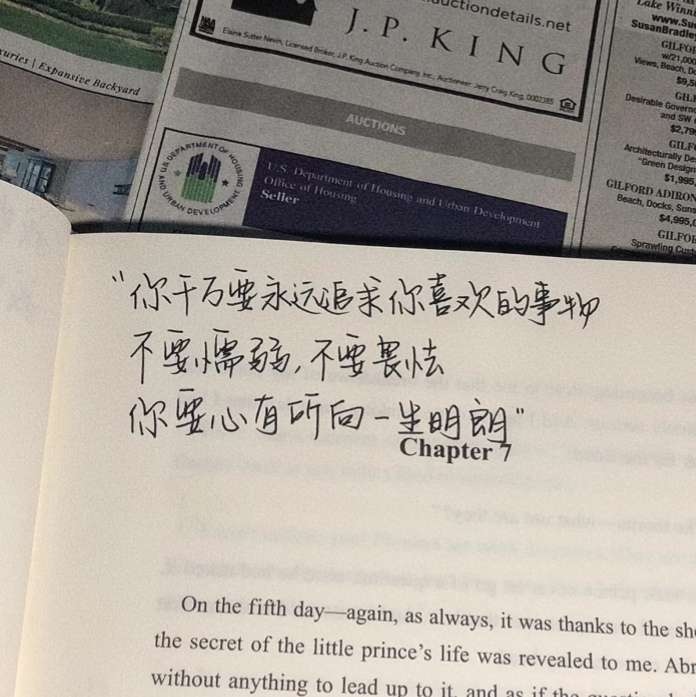 uctiondetails.net
J.P. KING
Elaine Sutter Nevin, Licensed Broker, J.P. King Auction Company, Inc., Auctioneer: Jerry Craig King, 0002385
xuries | Expansive Backyard
AUCTIONS
U.S. DEPARTMENT OF HOUSING AND URBAN DEVELOPMENT
U.S. Department of Housing and Urban Development
Office of Housing
Seller
Lake Winni
www.Su
SusanBradley
GILFO
w/21,000
Views, Beach, Do
$9,5
GIL
Desirable Governo
and SW
$2,79
GILF
Architecturally De
"Green Design
$1,995
GILFORD ADIRON
Beach, Docks, Suns
$4,995,0
GILFO
Sprawling Cust
"你千万要永远追求你喜欢的事物
不要懦弱,不要畏怯
你要心有所向一生明朗"
Chapter 7
On the fifth day—again, as always, it was thanks to the she
the secret of the little prince's life was revealed to me. Abr
without anything to lead up to it, and as if the question had